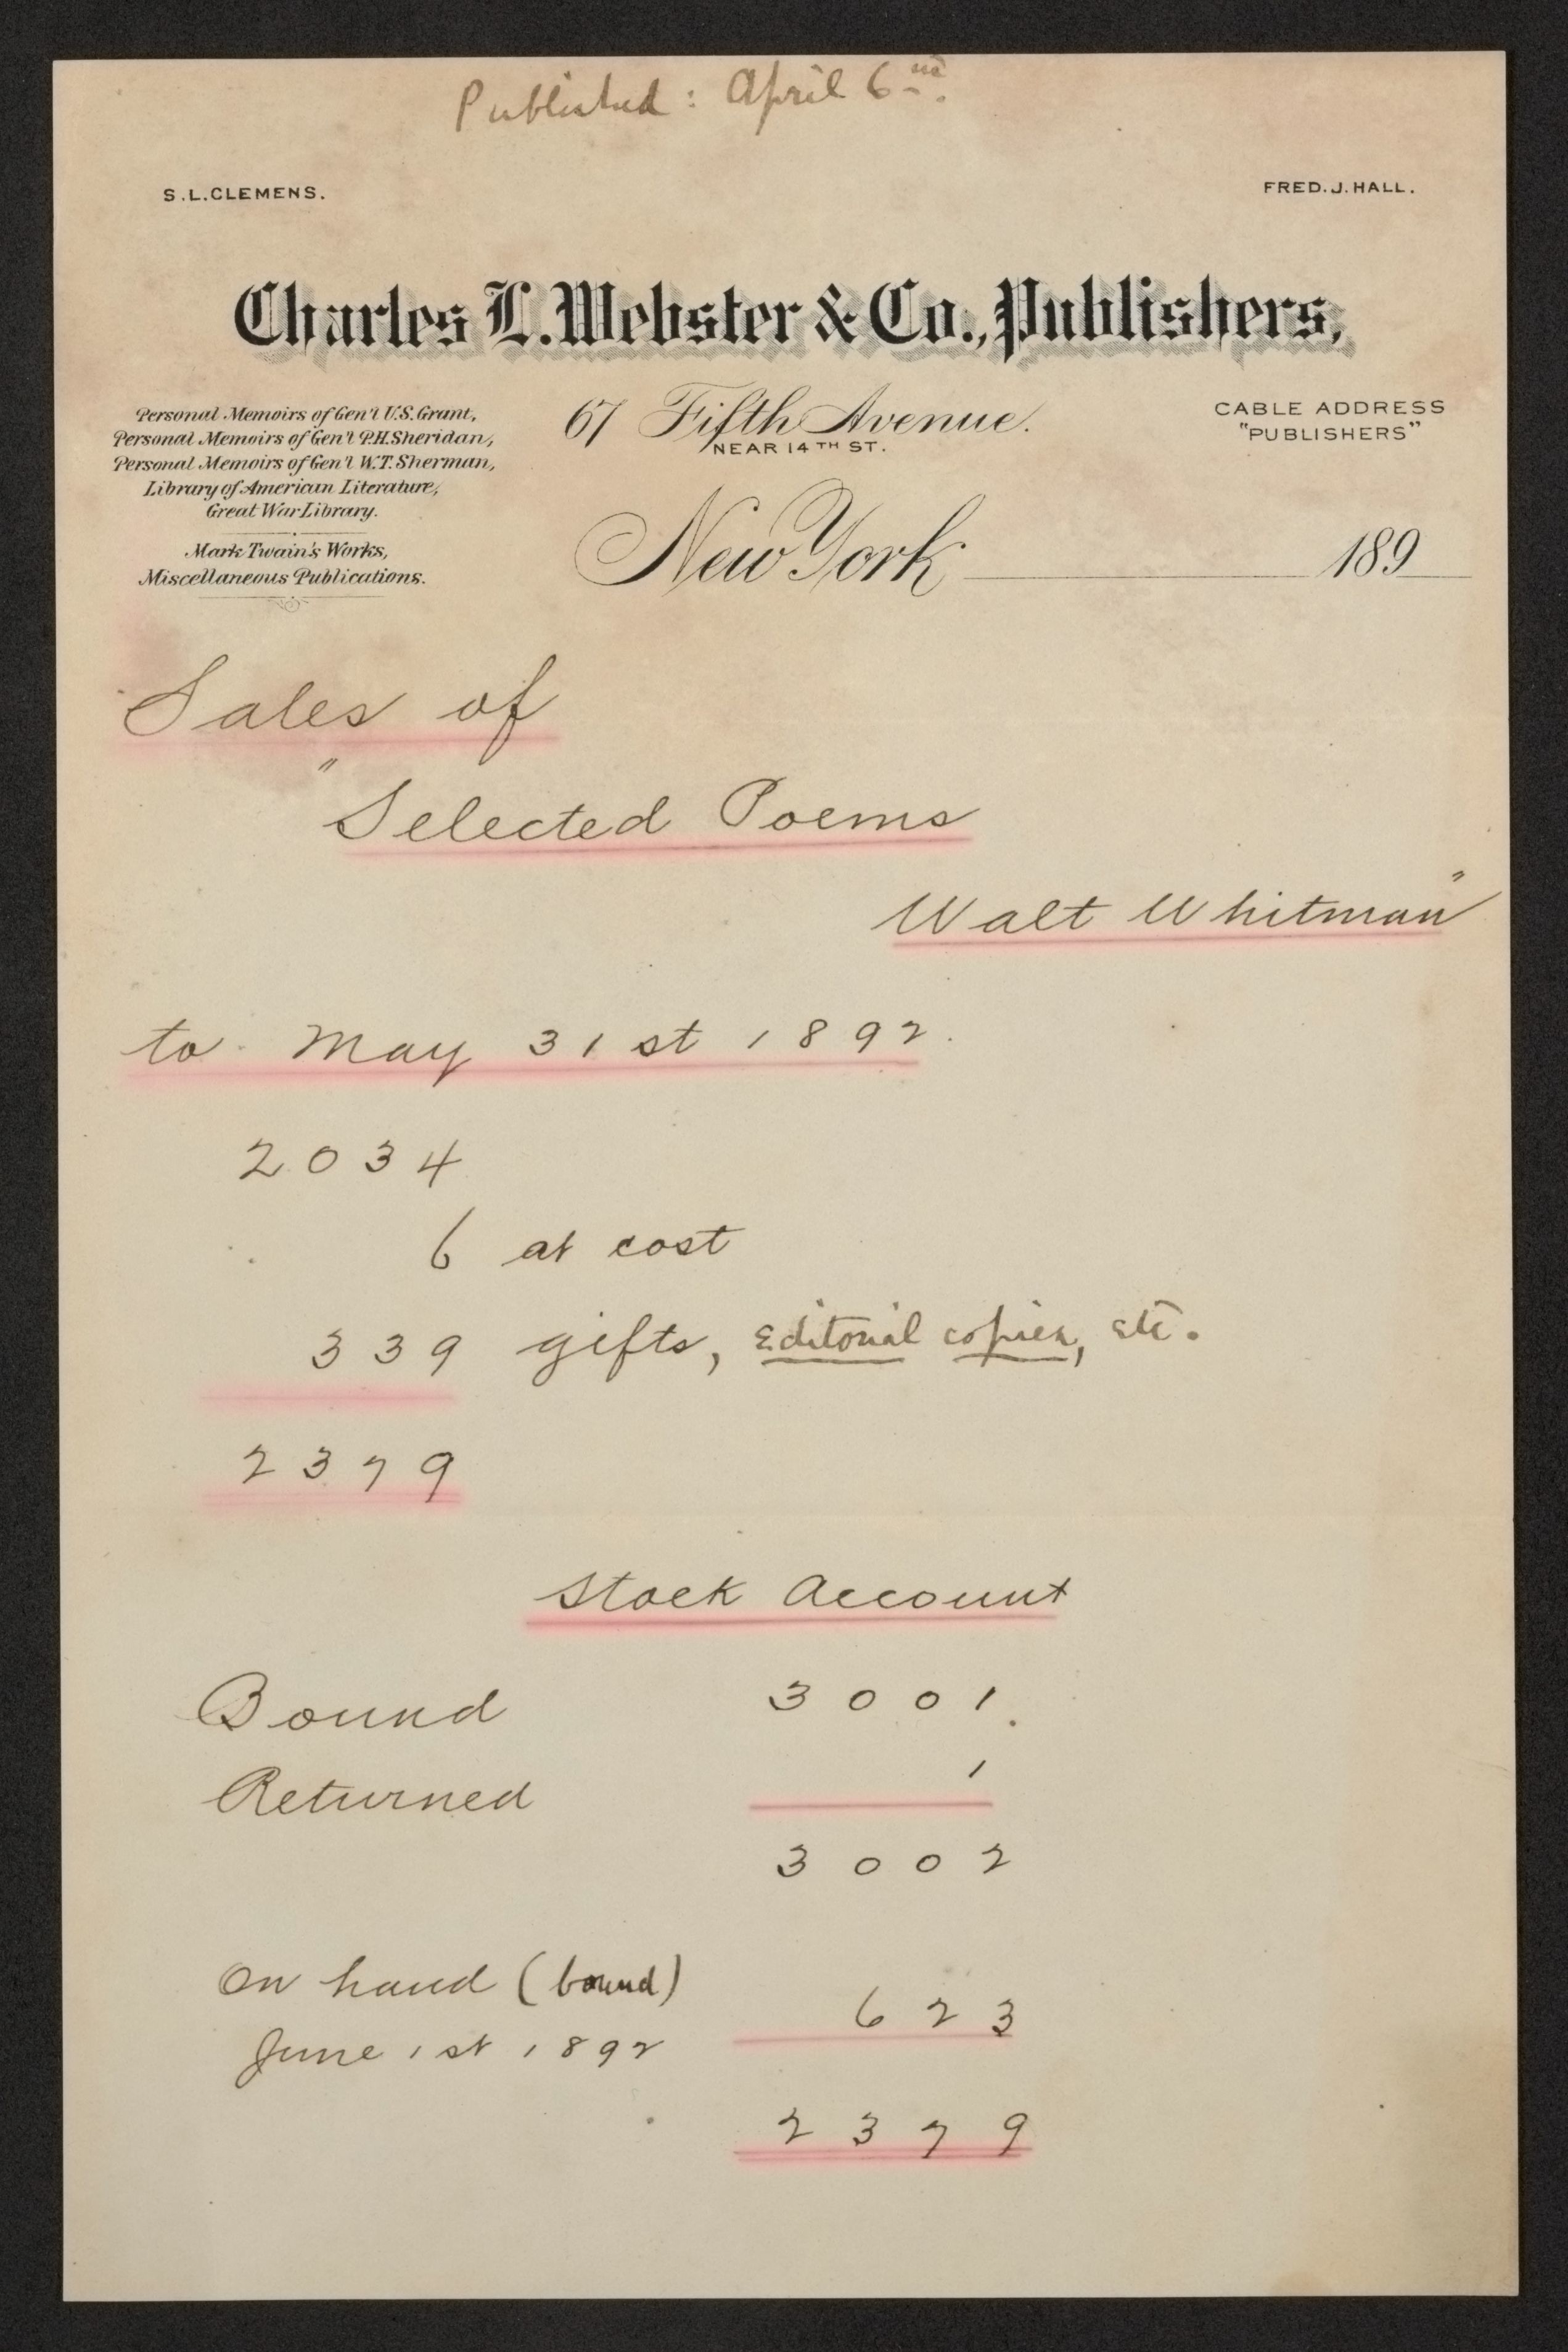 Published: April 6
S.L.CLEMENS.
FRED.J.HALL.
Charles L. Webster & Co., Publishers,
Personal Memoirs of Gen'l U.S. Grant,
Personal Memoirs of Gen'l P.H. Sheridan,
Personal Memoirs of Gen'l W.T. Sherman,
Library of American Literature,
Great War Library.
Mark Twain's Works,
Miscellaneous Publications.
67 Fifth Avenue.
NEAR 14TH ST.
CABLE ADDRESS
"PUBLISHERS"
New York 189
Sales of
"Selected Poems
Walt Whitman"
to May 31st 1892.
2034
6 at cost
339 gifts, Editorial copies, etc.
2379
Stock Account
Bound 3001.
Returned 1
3002
On hand (bound) 623
June 1st 1892
2379